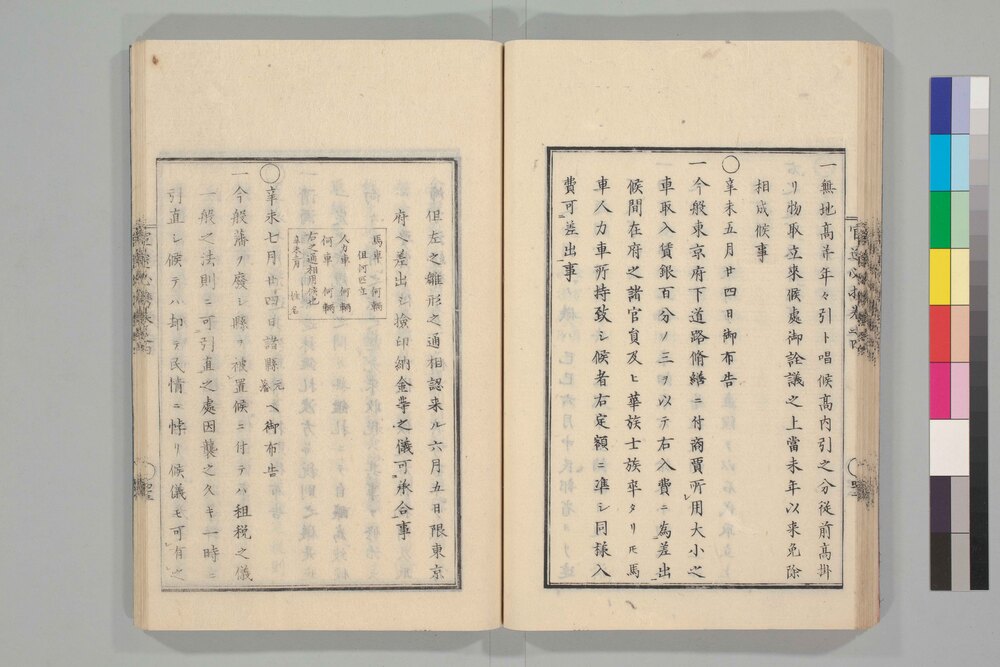 一無地高弁年々引ト唱候高内引之分従前高掛
リ物取立来候處御詮議之上當未年以来免除
相成候事
〇辛未五月廿四日御布告
一今般東京府下道路脩繕ニ付商賈所用大小之
車取入賃銀百分ノ三ヲ以テ右入費ニ為差出
候間在府之諸官員及ヒ華族士族卒タリ𪜈馬
車人力車所持致シ候者右定額ニ準シ同様入
費可差出事
但左之雛形之通相認来ル六月五日限東京
府ヘ差出シ撿印納金等之儀可承合事
馬車 何輌
但何匹立
人力車 何輌
何車 何輌
右之通相用候也
辛未五月 姓名
〇辛未七月廿四日諸縣元藩ヘ御布告
一今般藩ヲ廢シ縣ヲ被置候ニ付テハ租税之儀
一般之法則ニ可引直之處因襲之久キ一時ニ
引直シ候テハ却テ民情ニ悖リ候儀モ可有之